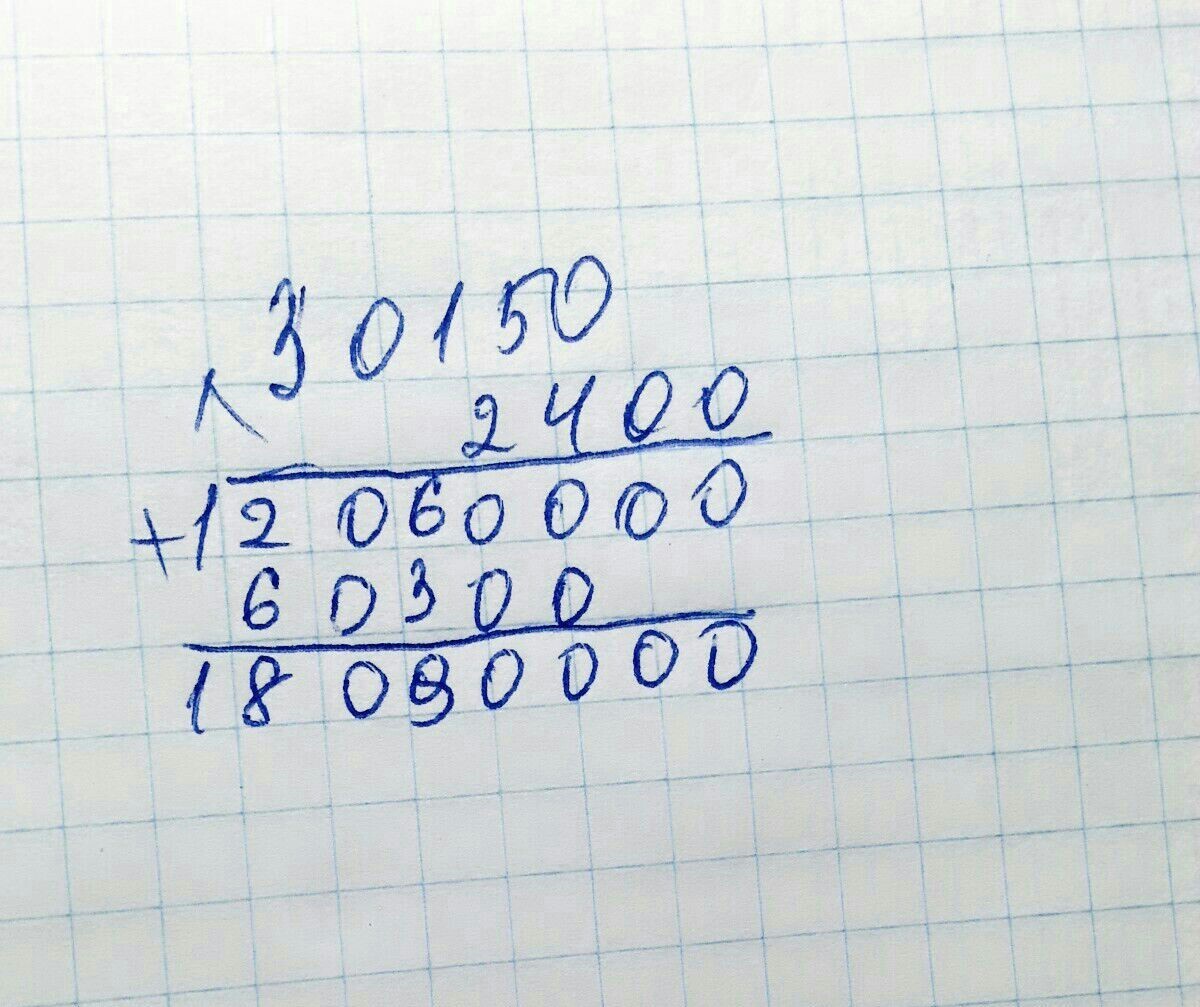 × 30150
2400
+ 12060000
60300
18090000